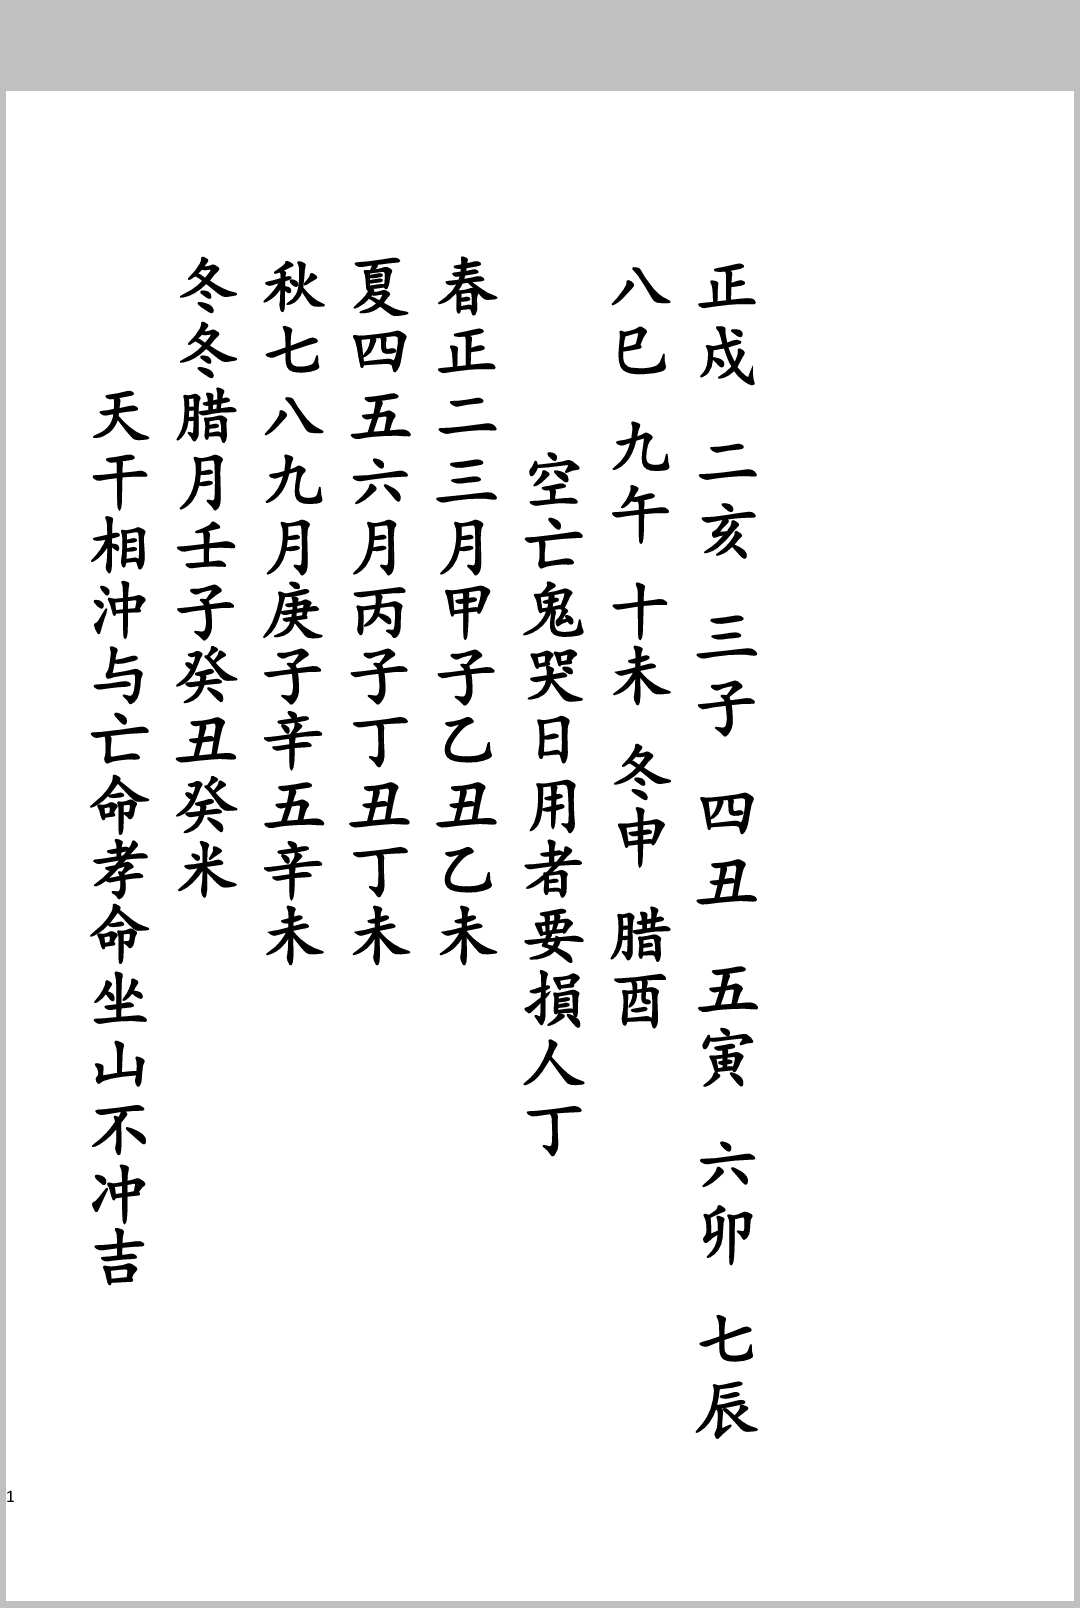 正戍 二亥 三子 四丑 五寅 六卯 七辰
八巳 九午 十未 冬申 腊酉
空亡鬼哭日用者要損人丁
春正二三月甲子乙丑乙未
夏四五六月丙子丁丑丁未
秋七八九月庚子辛五辛未
冬冬腊月壬子癸丑癸米
天干相沖与亡命孝命坐山不冲吉
1